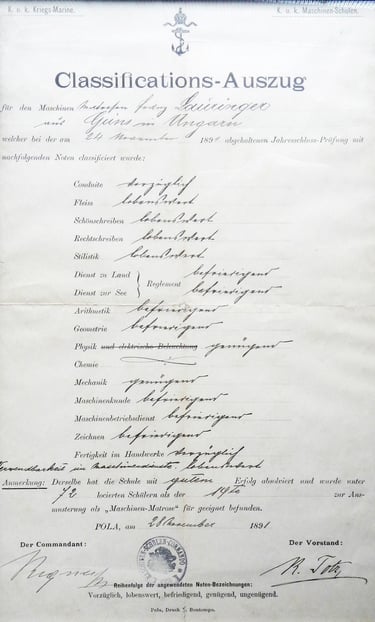 K. u. k. Kriegs-Marine. K. u. k. Maschinen-Schulen.
Classifications-Auszug
für den Maschinen Gairinger
aus Güns in Ungarn
welcher bei der am 24 November 1891 abgehaltenen Jahresschluss-Prüfung mit
nachfolgenden Noten classificiert wurde:
Conduite vorzüglich
Fleiss lobenswert
Schönschreiben lobenswert
Rechtschreiben lobenswert
Stilistik lobenswert
Dienst zu Land } Reglement befriedigend
Dienst zur See befriedigend
Arithmetik befriedigend
Geometrie befriedigend
Physik und elektrische Beleuchtung genügend
Chemie
Mechanik genügend
Maschinenkunde befriedigend
Maschinenbetriebsdienst befriedigend
Zeichnen befriedigend
Fertigkeit im Handwerke vorzüglich
Verwendbarkeit im Maschinendienste lobenswert
Anmerkung: Derselbe hat die Schule mit gutem Erfolg absolviert und wurde unter
72 locierten Schülern als der 19te zur Aus-
musterung als „Maschinen-Matrose" für geeignet befunden.
POLA, am 28 November 1891
Der Commandant: Der Vorstand:
Reihenfolge der angewendeten Noten-Bezeichnungen:
Vorzüglich, lobenswert, befriedigend, genügend, ungenügend.
Pola, Druck